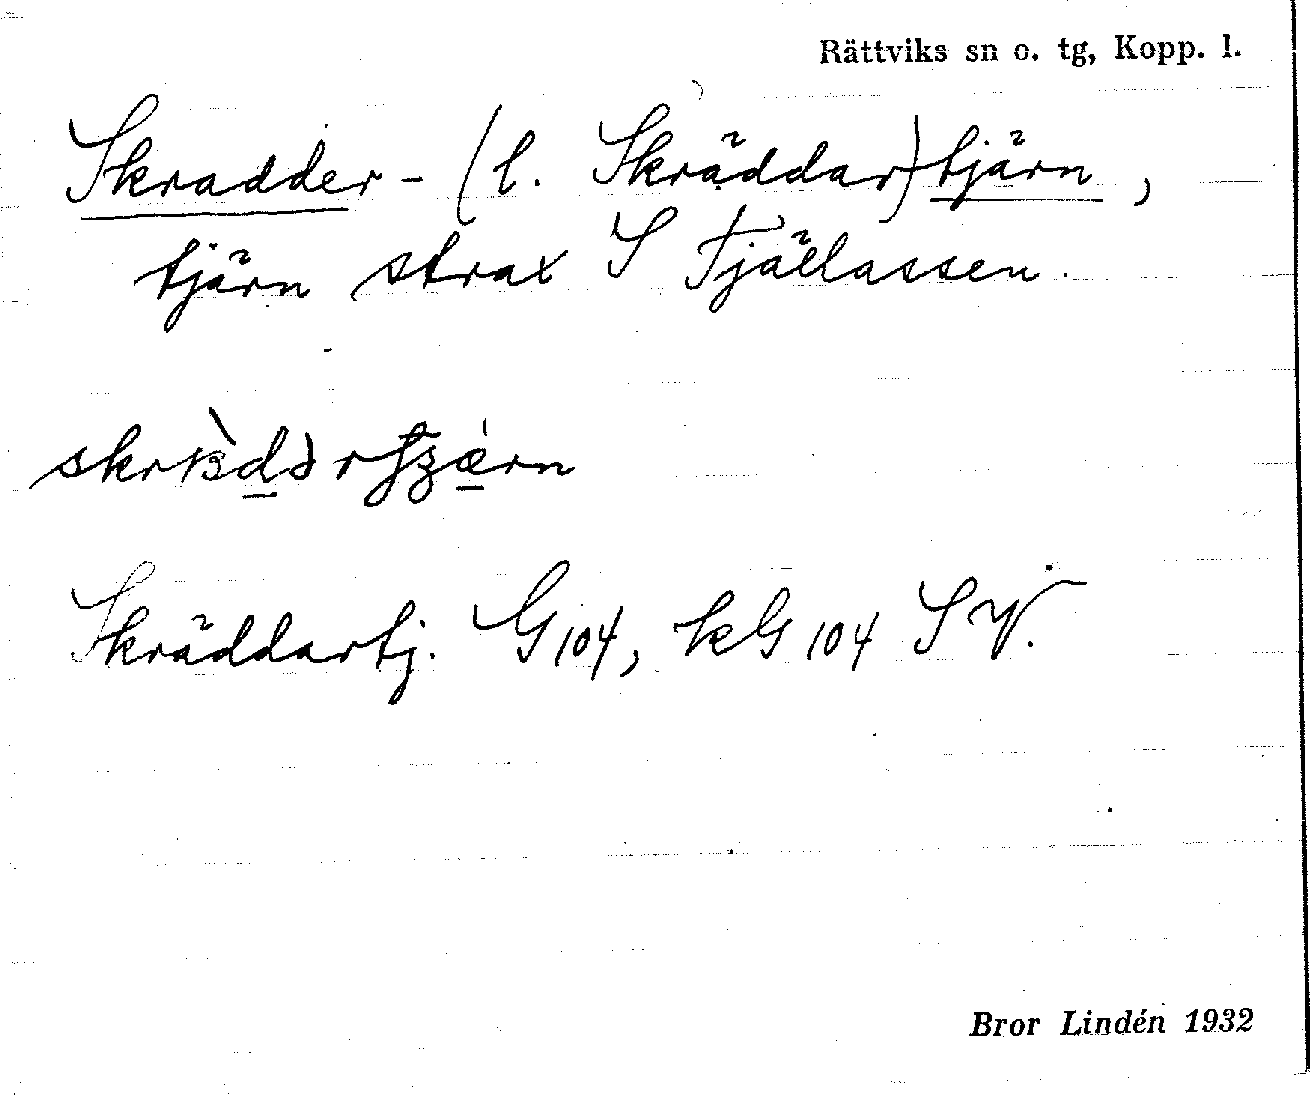 Rättviks sn o. tg, Kopp. l.
Skradder- (l. Skräddar)tjärn,
tjärn strax S Fjällassen.
Skräddartj. G104, kG 104 SV.
Bror Lindén 1932